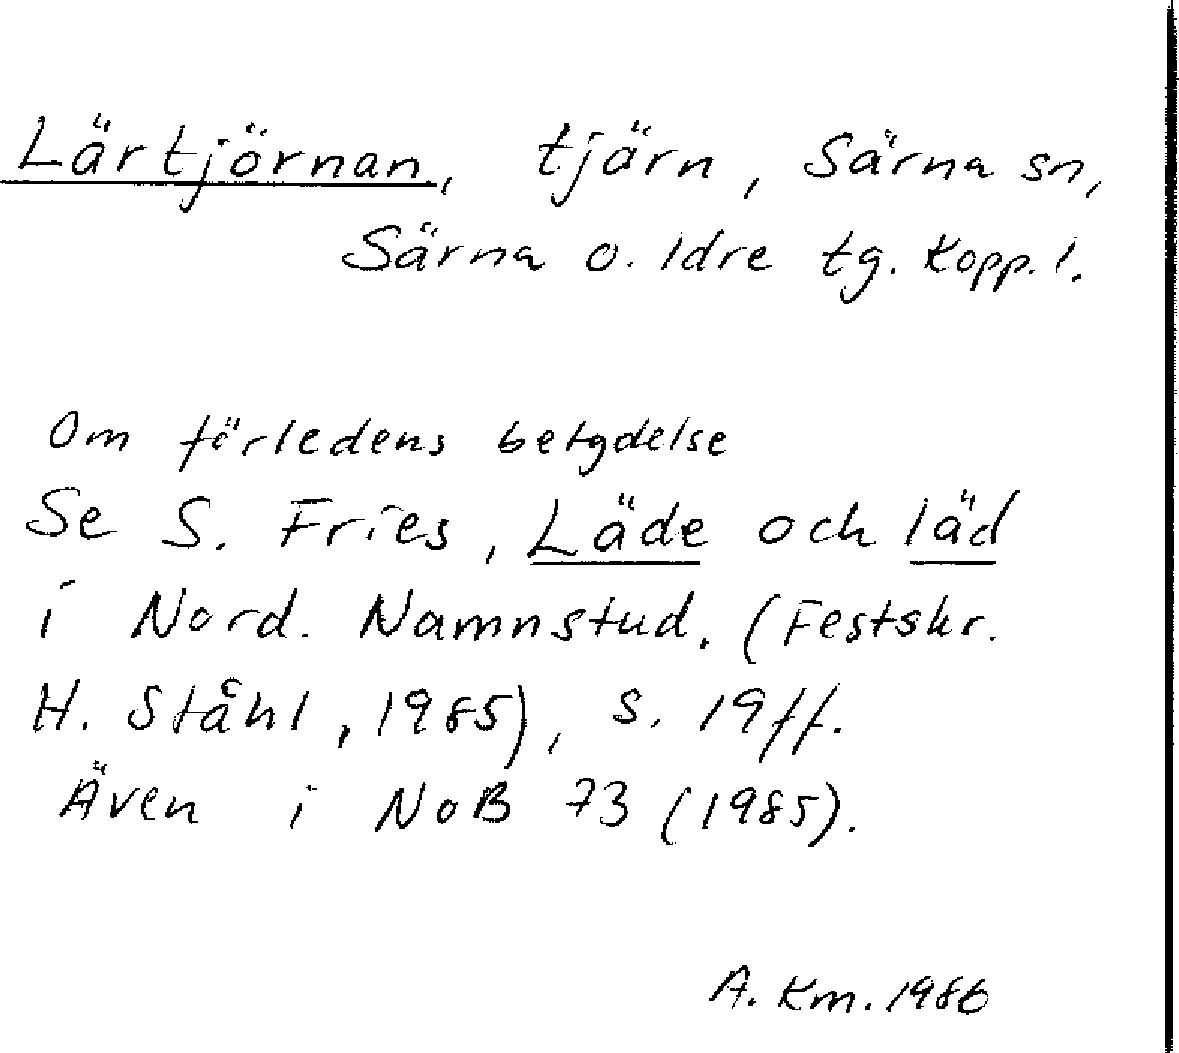 Lärtjörnan, tjärn, Särna sn,
Särna o. Idre tg. Kopp. l.
Om förledens betydelse
Se S. Fries, Läde och läd
i Nord. Namnstud. (Festskr.
H. Ståhl, 1985), s. 19ff.
Även i NoB 73 (1985).
A. Km. 1986